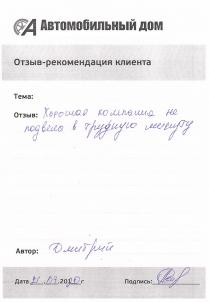 Автомобильный дом
Отзыв-рекомендация клиента
Тема:
Отзыв: Хорошая компания не
подвела в трудную минуту
Автор: Дмитрий
Дата 21.09.2020 Подпись: